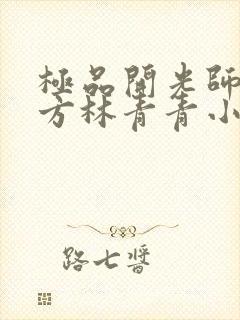 極品開光師
方林青青小
路七醬